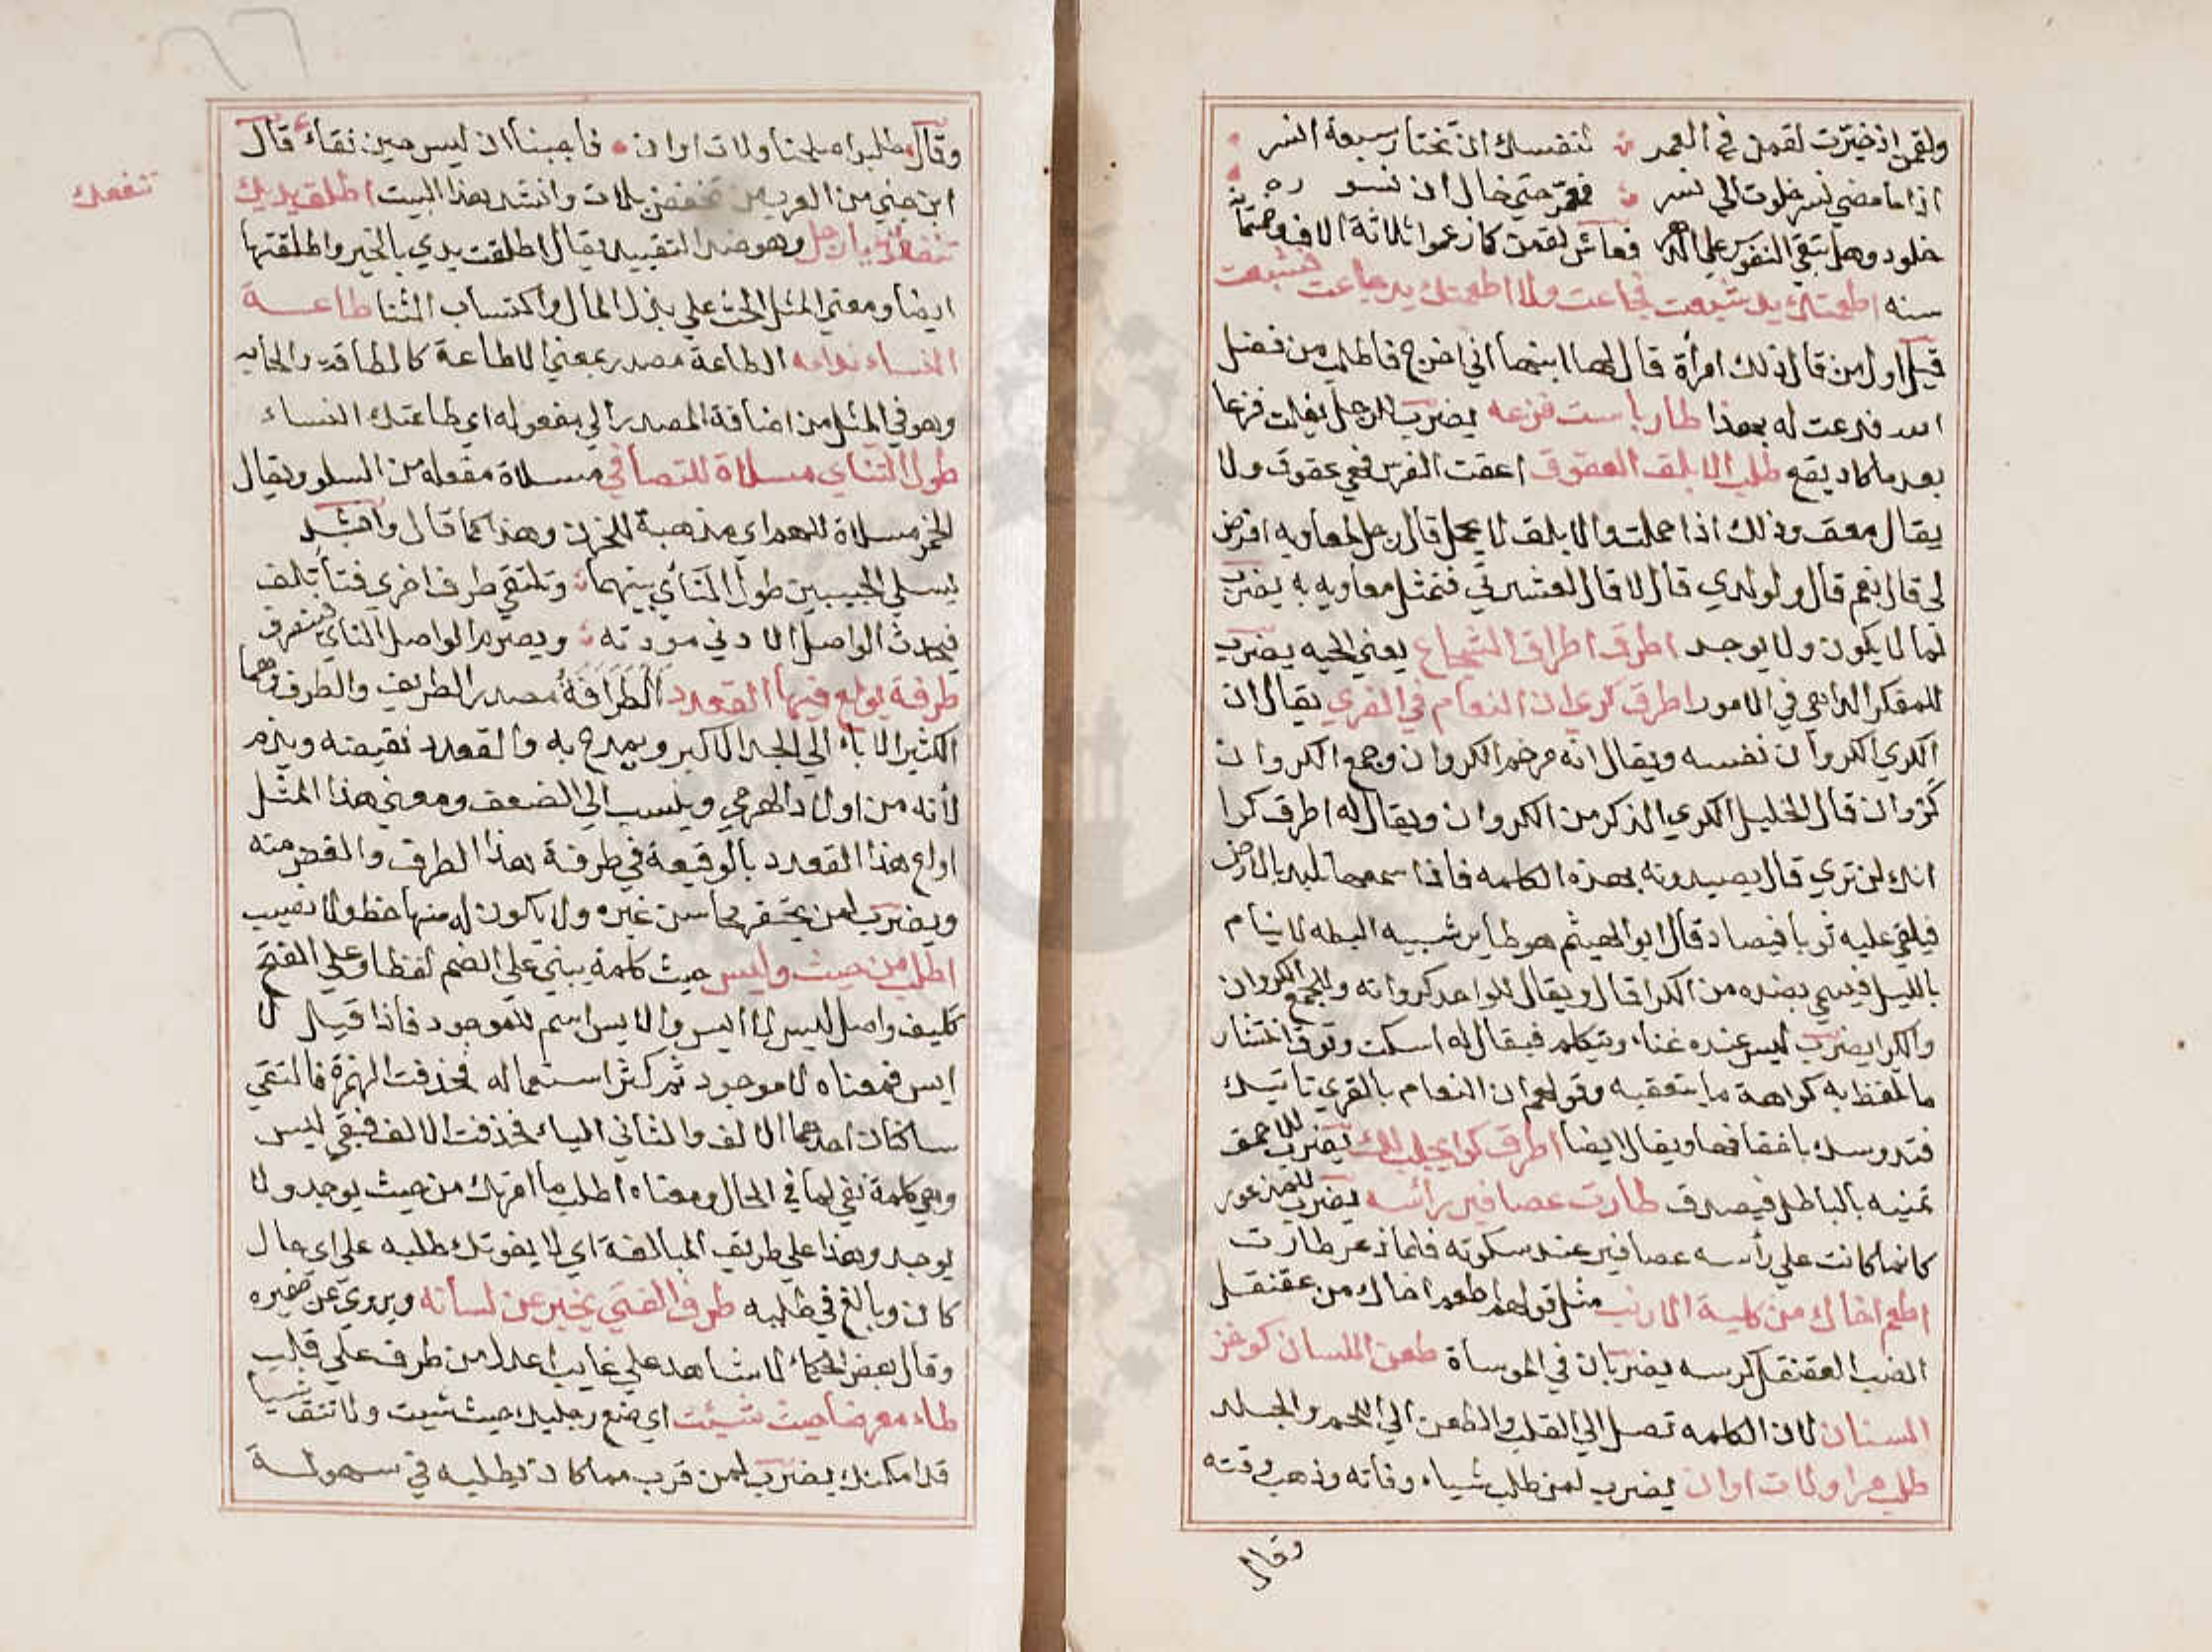 ولقمن اذ خيرت لقمن في العمر لنفسك ان تختار سبعة انسر
اذا ما مضي نسر خلوت الي نسر فعمر حتي خال ان نسوره
خلود وهل تبقي النفوس علي الدهر فعاش لقمن كما زعموا ثلاثة الاف وخمسمائة
سنه اطعمتك يد شبعت فجاعت ولا اطعمتك يد جاعت فشبعت
قيل اول من قال ذلك امرأة قال لها ابنها اني اخرج فاطلب من فضل
الله فدعت له بهذا طار باست فزعه يضرب للرجل يفلت فزعا
بعد ما كاد يقع طلب الابلق العقوق اعقت الفرس فهي عقوق ولا
يقال معق وذلك اذا حملت والابلق لا يحمل قال رجل لمعاويه افرض
لي قال نعم قال ولولدي قال لا قال لعشيرتي فتمثل معاويه به يضرب
لما لا يكون ولا يوجد اطرق اطراق الشجاع يعني الحيه يضرب
للمفكر الداهي في الامور اطرق كري ان النعام في القري يقال ان
الكري الكروان نفسه ويقال انه مرخم الكروان وجمع الكروان
كروان قال الخليل الكري الذكر من الكروان ويقال له اطرق كرا
انك لن تري قال يصيدونه بهذه الكلمه فاذا سمعها تلبد بالارض
فيلقي عليه ثوبا فيصاد قال ابو الهيثم هو طاير شبيه البطه لا ينام
بالليل فيسمي بضده من الكرا قال ويقال للواحد كروانه والجمع الكروان
والكرا يضرب ليس عنده غناء ويتكلم فيقال له اسكت وتوق انتشار
ما تلفظ به كراهة ما يتعقبه وقولهم ان النعام بالقري تاتيك
فتدوسك باخفافها ويقال ايضا اطرق كرا يحلب لك يضرب للاحمق
تمنيه بالباطل فيصدق طارت عصافير رأسه يضرب للمذعور
كانما كانت علي رأسه عصافير عند سكوته فلما ذعر طارت
اطعم اخاك من كلية الارنب مثل قولهم اطعم اخاك من عقنقل
الضب العقنقل كرسه يضربان في المواساة طعن اللسان كوخز
السنان لان الكلمه تصل الي القلب والطعن الي اللحم والجلد
طلب امرا ولات اوان يضرب لمن طلب شياء وفاته وذهب وقته
وقال
وقال طلبوا صلحنا ولات اوان فاجبنا ان ليس حين بقاء قال
ابن جني من العرب من يخفض بلات وانشد هذا البيت اطلق يديك
تنفعك
تنفعك يا رجل وهو ضد التقييد يقال اطلقت يدي بالخير واطلقتها
ايضا ومعني المثل الحث علي بذل المال واكتساب الثنا طاعة
النساء ندامه الطاعة مصدر بمعني الاطاعة كالطاقه والجابه
وهو في المثل من اضافة المصدر الي مفعوله اي طاعتك النساء
طول التناي مسلاة للتصافي مسلاة مفعلة من السلو ويقال
الخمر مسلاة للهم اي مذهبة للحزن وهذا كما قال وانشد
يسلي الحبيبين طول الناي بينهما وتلتقي طرف اخري فتأتلف
فيحدث الواصل الادني مودته ويصرم الواصل الناي فينصرف
طرفة يولع فيها القعدد الطرافة مصدر الطريف والطرف وهما
الكثير الاباء الي الجد الاكبر ويمدح به والقعدد نقيضه ويذم
لأنه من اولاد الهرمي وينسب الي الضعف ومعني هذا المثل
اولع هذا القعدد بالوقيعة في طرفة هذا الطرف والغض منه
ويضرب لمن يحتقر محاسن غيره ولا يكون له منها حظ ولا نصيب
اطلب من حيث وليس حيث كلمة يبني علي الضم لفظا وعلي الفتح
ككيف واصل ليس لا ايس والايس اسم للموجود فاذا قيل لا
ايس فمعناه لا موجود ثم كثر استعماله فحذفت الهمزة فالتقي
ساكنان احدهما الالف والثاني الياء فحذفت الالف فبقي ليس
وهي كلمة نفي لما في الحال ومعناه اطلب ما امرتك من حيث يوجد ولا
يوجد وهذا علي طريق المبالغة اي لا يفوتك طلبه علي اي حال
كان وبالغ في طلبه طرف الفتي يخبر عن لسانه ويروي عن ضميره
وقال بعض الحكماء لا شاهد علي غايب اعدل من طرف علي قلب
طاء معرضا حيث شيئت اي ضع رجليك حيث شيت ولا تتق شيا
قد امكنك يضرب لمن قرب مما كان يطلبه في سهولة